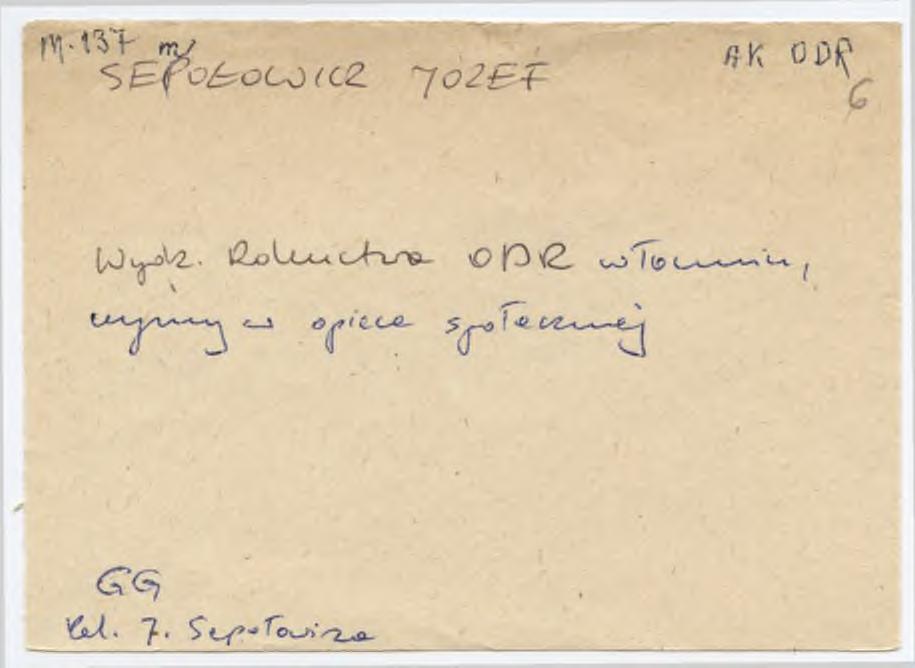 M.137 m/ AK ODR
SEPOŁOWICZ JÓZEF 6
Wydz. Rolnictwa ODR w Toruniu,
czynny w opiece społecznej
GG
Rel. J. Sepołowicza